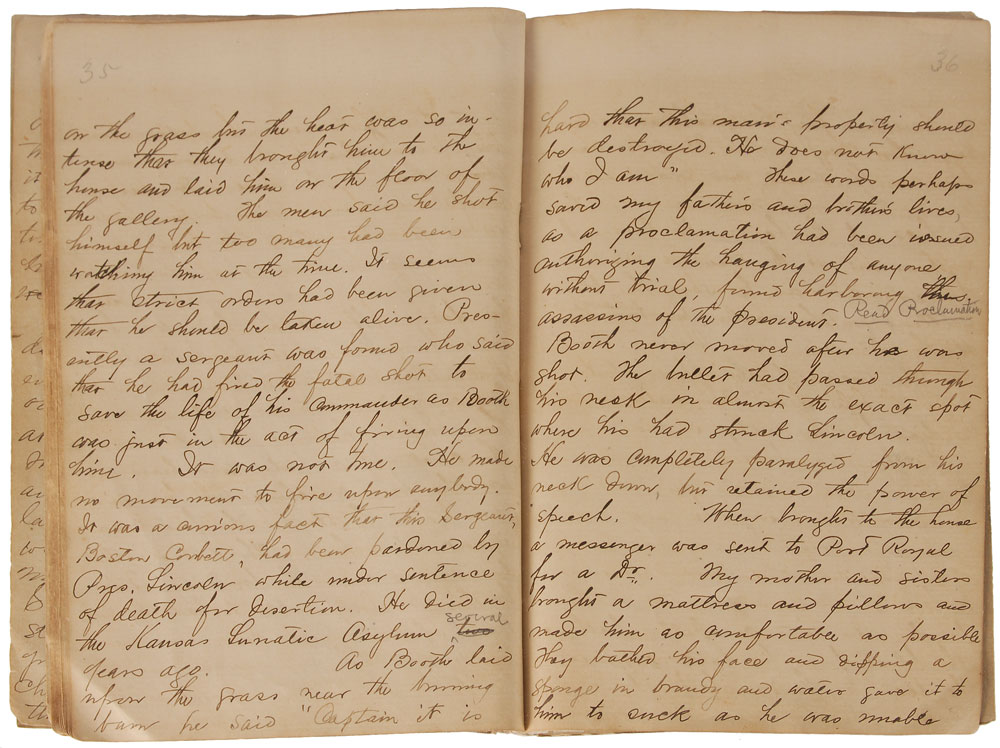 35
on the grass but the heat was so in-
tense that they brought him to the
house and laid him on the floor of
the gallery. The men said he shot
himself but too many had been
watching him at the time. It seems
that strict orders had been given
that he should be taken alive. Pres-
ently a sergeant was found who said
that he had fired the fatal shot to
save the life of his commander as Booth
was just in the act of firing upon
him. It was not true. He made
no movement to fire upon anybody.
It was a curious fact that this Sergeant,
Boston Corbett, had been pardoned by
Pres. Lincoln while under sentence
of death for desertion. He died in
the Kansas Lunatic Asylum several
years ago. As Booth laid
upon the grass near the burning
barn he said "Captain it is
36
hard that this man's property should
be destroyed. He does not know
who I am" These words perhaps
saved my father's and brother's lives,
as a proclamation had been issued
authorizing the hanging of anyone
without trial, found harboring the
assassins of the president. Read Proclamation
Booth never moved after he was
shot. The bullet had passed through
his neck in almost the exact spot
where his had struck Lincoln.
He was completely paralyzed from his
neck down, but retained the power of
speech. When brought to the house
a messenger was sent to Port Royal
for a Dr. My mother and sisters
brought a mattress and pillows and
made him as comfortable as possible
They bathed his face and dipping a
sponge in brandy and water gave it to
him to suck as he was unable